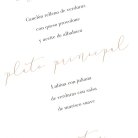 Canelón relleno de verduras
con queso provolone
y aceite de albahaca
plato principal
Lubina con juliana
de verduras con salsa
de marisco suave